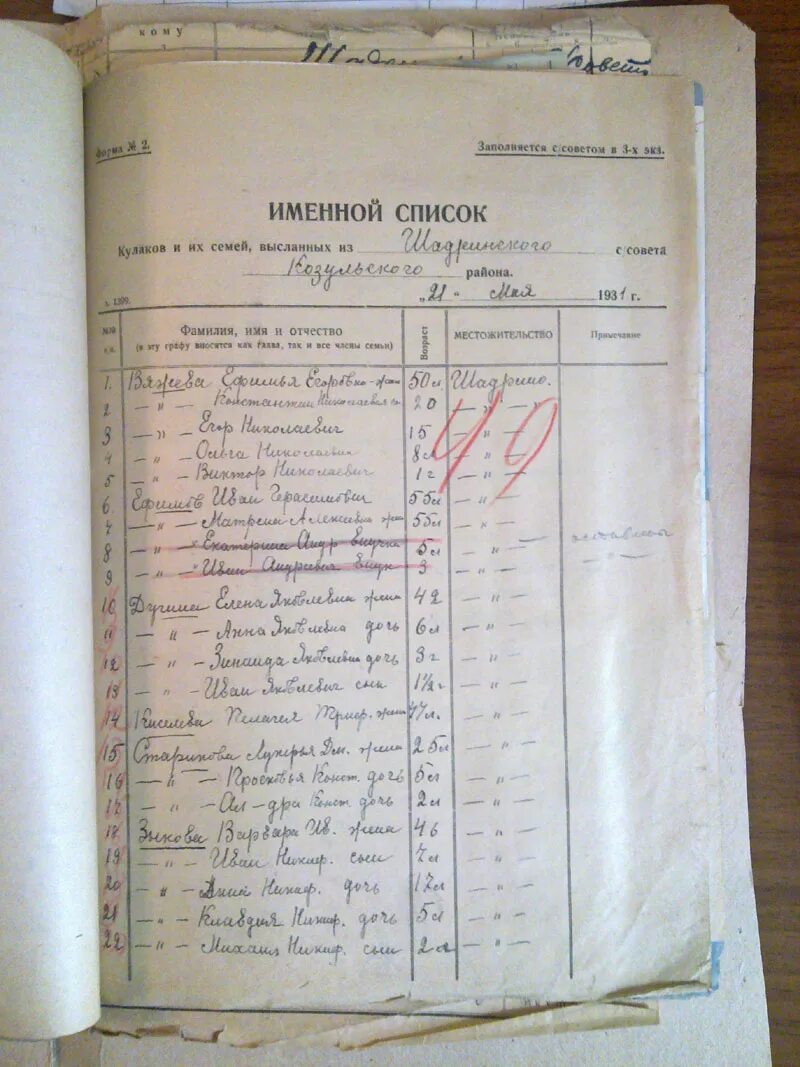 кому
Форма № 2.
Заполняется с/советом в 3-х экз.
ИМЕННОЙ СПИСОК
Кулаков и их семей, высланных из Шадринского с/совета
Козульского района.
"21" Мая 1931 г.
з. 1399.
№№ п.п.
Фамилия, имя и отчество
(в эту графу вносятся как глава, так и все члены семьи)
Возраст
МЕСТОЖИТЕЛЬСТВО
Примечание
1. Вяжева Ефимья Егоровна - жена 50 л. Шадрино.
2 — „ — Константин Николаевич 20 — „ —
3 — „ — Егор Николаевич 15 — „ —
4 — „ — Ольга Николаевна 8 л — „ —
5 — „ — Виктор Николаевич 1 г — „ —
49
6. Ефимов Иван Герасимович 55 л — „ —
7 — „ — Матрена Алексеевна жена 55 л — „ —
8 — „ — Екатерина Андр внучка 5 л — „ — оставлены
9 — „ — Иван Андреевич внук 3 — „ — — „ —
10 Елена Яковлевна жена 42 — „ —
11 — „ — Анна Яковлевна дочь 6 л — „ —
12 — „ — Зинаида Яковлевна дочь 3 г — „ —
13 — „ — Иван Яковлевич сын 1½ г — „ —
14 Киселева Пелагея Триф. жена 77 л. — „ —
15 Старикова Лукерья Дм. жена 25 л — „ —
16 — „ — Просковья Конст. дочь 5 л — „ —
17 — „ — Ал-дра Конст. дочь 2 л — „ —
18 Зыкова Варвара Ив. жена 46 — „ —
19 — „ — Иван Никиф. сын 7 л — „ —
20 — „ — Анна Никиф. дочь 17 л — „ —
21 — „ — Клавдия Никиф. дочь 5 л — „ —
22 — „ — Михаил Никиф. сын 2 л — „ —